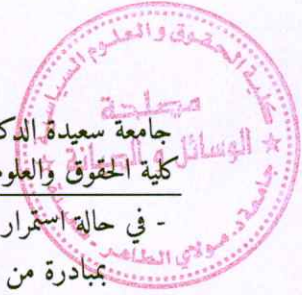 كلية الحقوق والعلوم السياسية
مصلحة
الوسائل والصيانة
جامعة د. مولاي الطاهر
جامعة سعيدة الدك
كلية الحقوق والعلوم
- في حالة استمرار
بمبادرة من